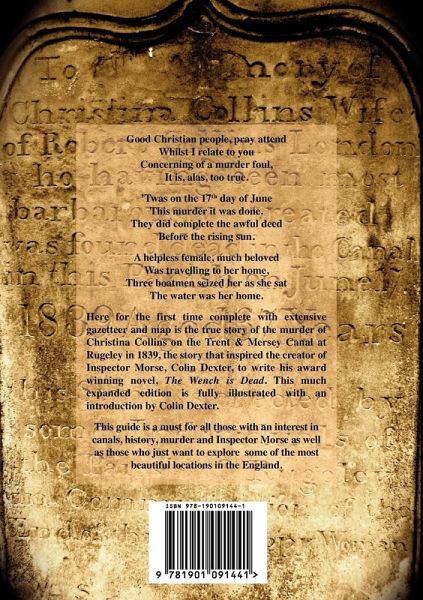 To The Memory of
Christina Collins Wife
of Rober
London
Good Christian people, pray attend
Whilst I relate to you
Concerning of a murder foul,
It is, alas, too true.
'Twas on the 17th day of June
This murder it was done.
They did complete the awful deed
Before the rising sun.
A helpless female, much beloved
Was travelling to her home.
Three boatmen seized her as she sat
The water was her home.
Here for the first time complete with extensive
gazetteer and map is the true story of the murder of
Christina Collins on the Trent & Mersey Canal at
Rugeley in 1839, the story that inspired the creator of
Inspector Morse, Colin Dexter, to write his award
winning novel, The Wench is Dead. This much
expanded edition is fully illustrated with an
introduction by Colin Dexter.
This guide is a must for all those with an interest in
canals, history, murder and Inspector Morse as well
as those who just want to explore some of the most
beautiful locations in the England.
ISBN 978-190109144-1
9 781901 091441 >